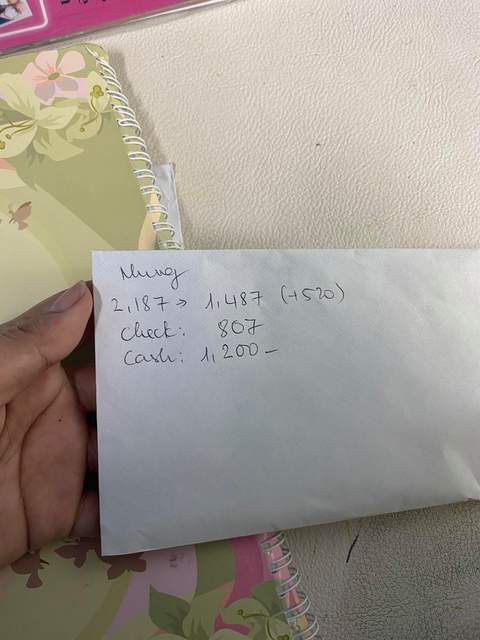 Nhung
2,187 → 1,487 (+520)
Check: 807
Cash: 1,200-